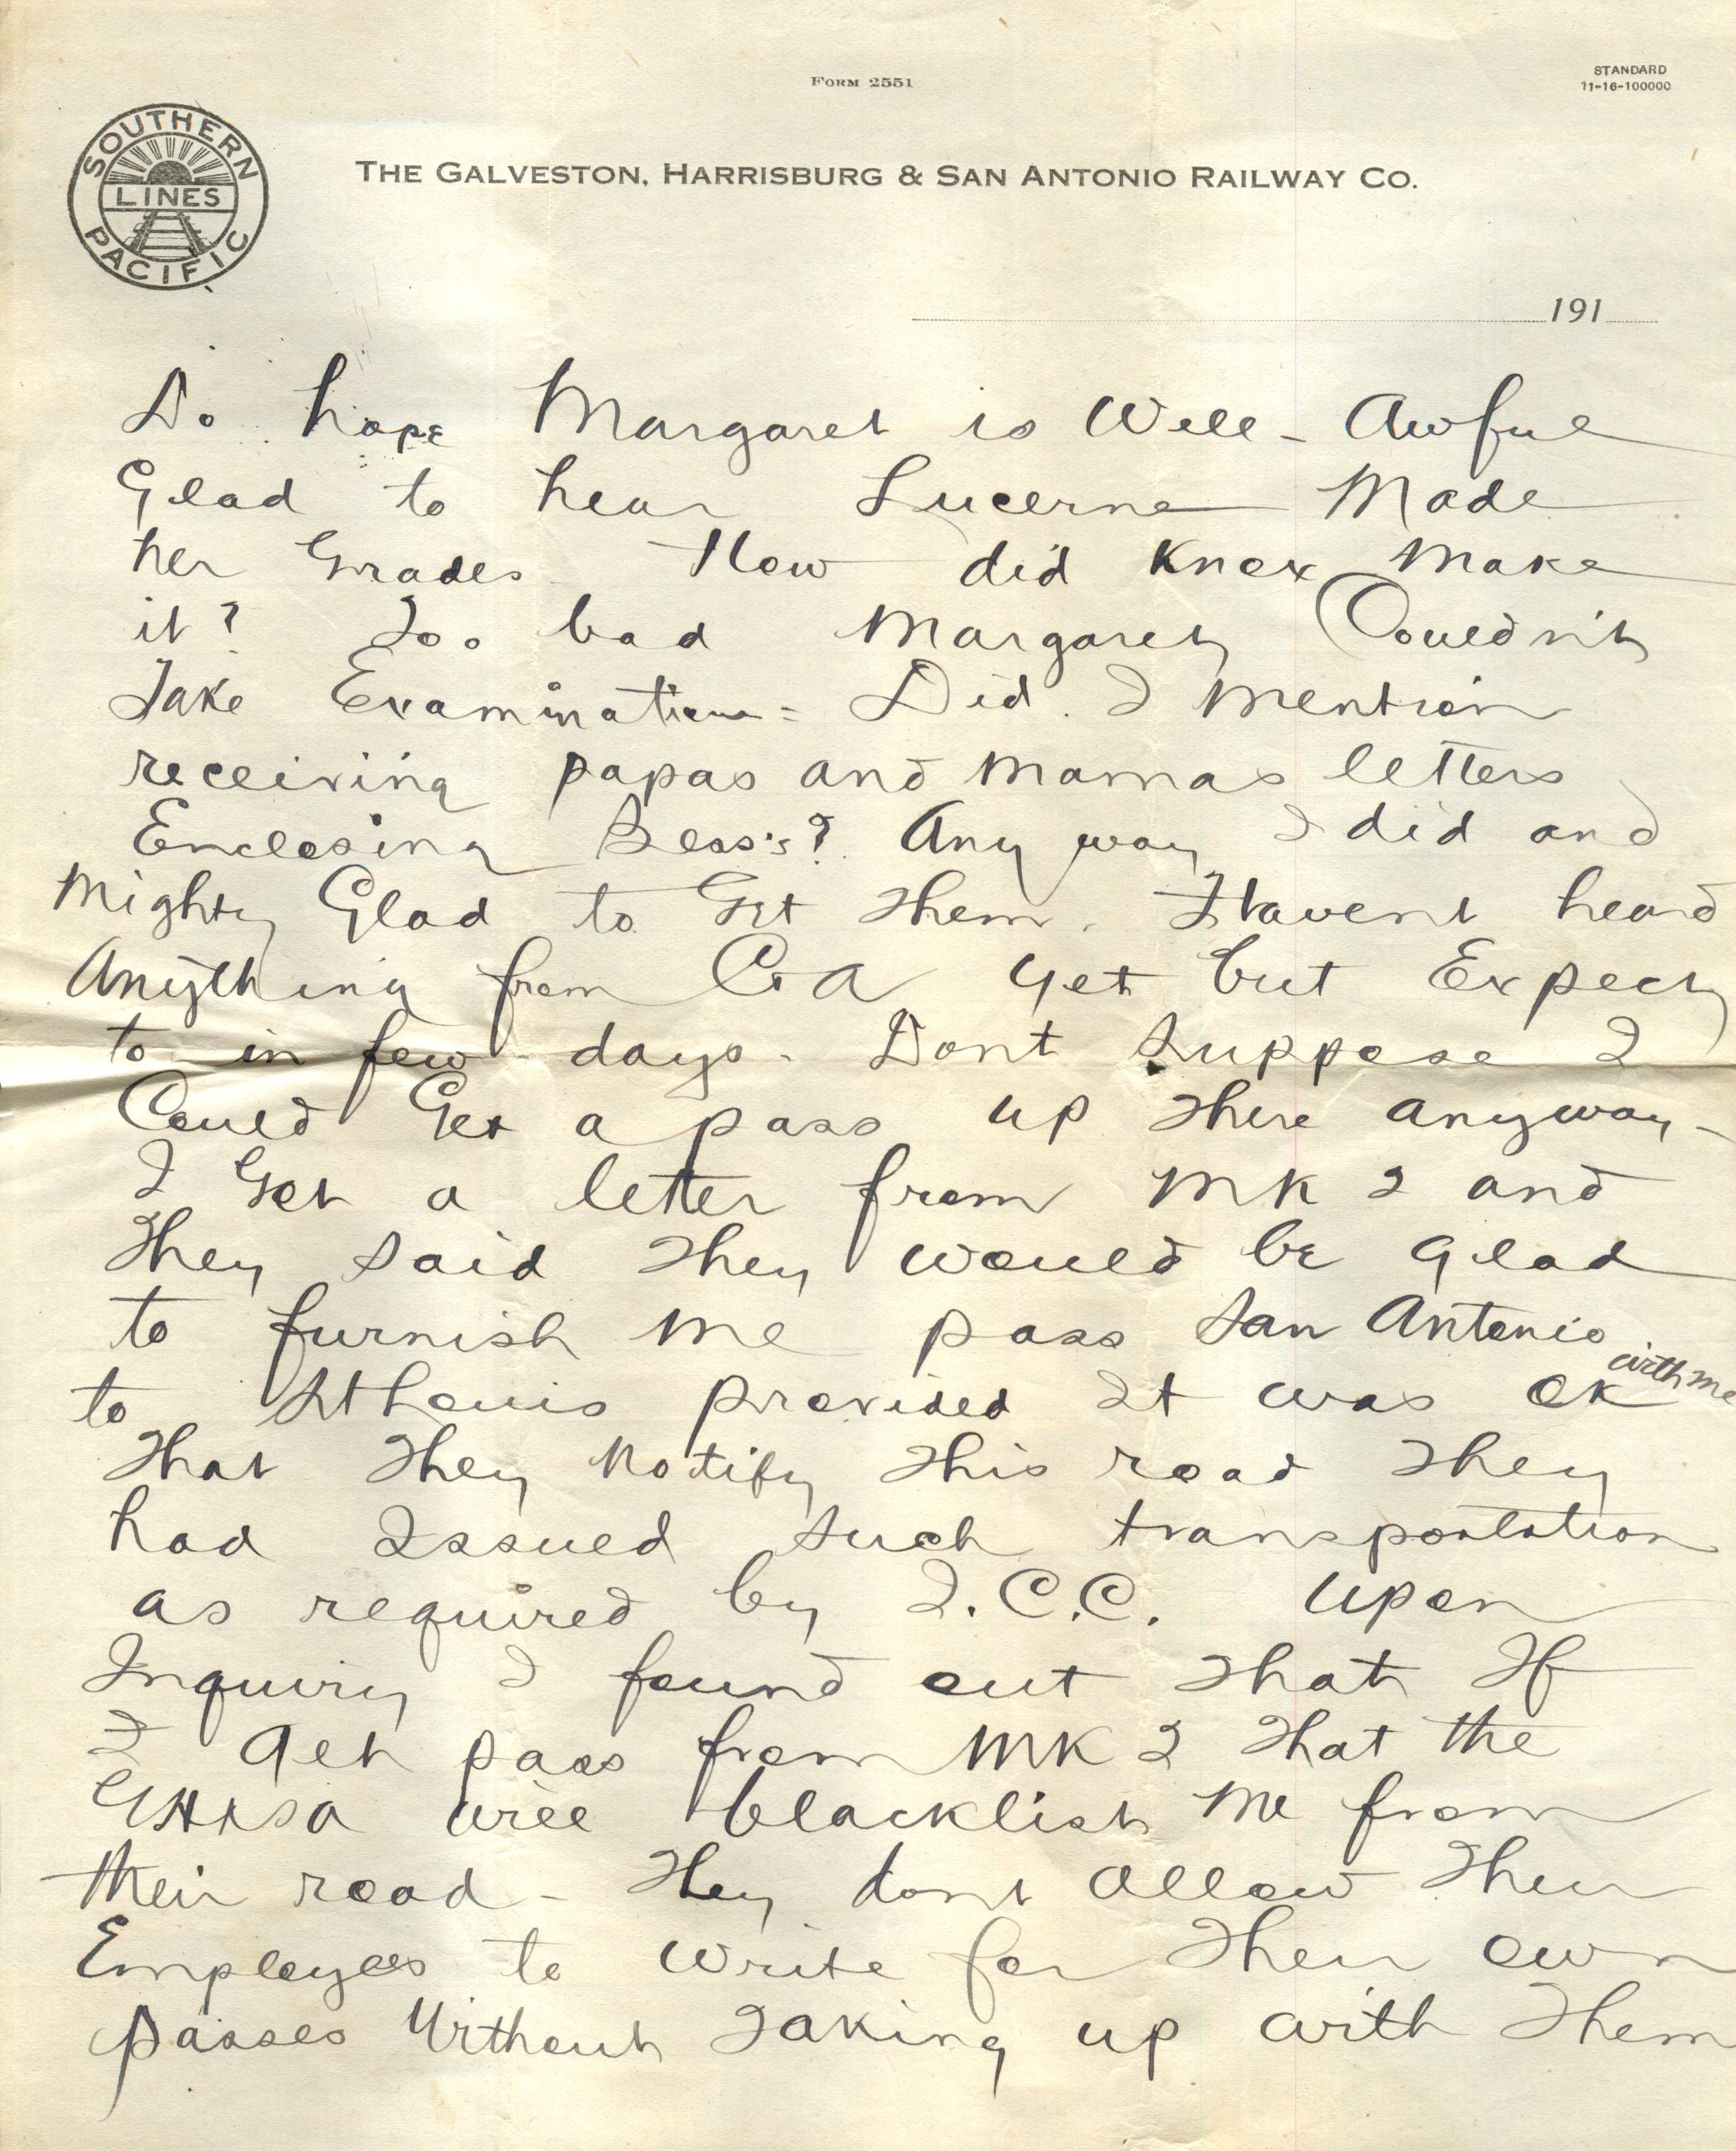 FORM 2551
STANDARD
11-16-100000
SOUTHERN
LINES
PACIFIC
THE GALVESTON, HARRISBURG & SAN ANTONIO RAILWAY CO.
191
Do hope Margaret is Well - Awful
Glad to hear Lucerne Made
her Grades How did Knox Make
it? Too bad Margaret Couldn't
Take Examination = Did I Mention
receiving papas and Mamas letters
Enclosing Bess's? Any way I did and
Mighty Glad to Get Them. Havent heard
Anything from Ga yet but Expect
to in few days - Dont Suppose I
Could Get a pass up There anyway -
I Got a letter from MK 2 and
They Said They would be Glad
to furnish Me pass San Antonio
to St Louis provided It was OK with me
That They Notify This road They
had Issued Such transportation
as required by I.C.C. Upon
Inquiry I found out That If
I Get pass from MK 2 That the
GH&SA will blacklist Me from
their road - They dont Allow Their
Employees to Write for Their own
passes Without Taking up with Them